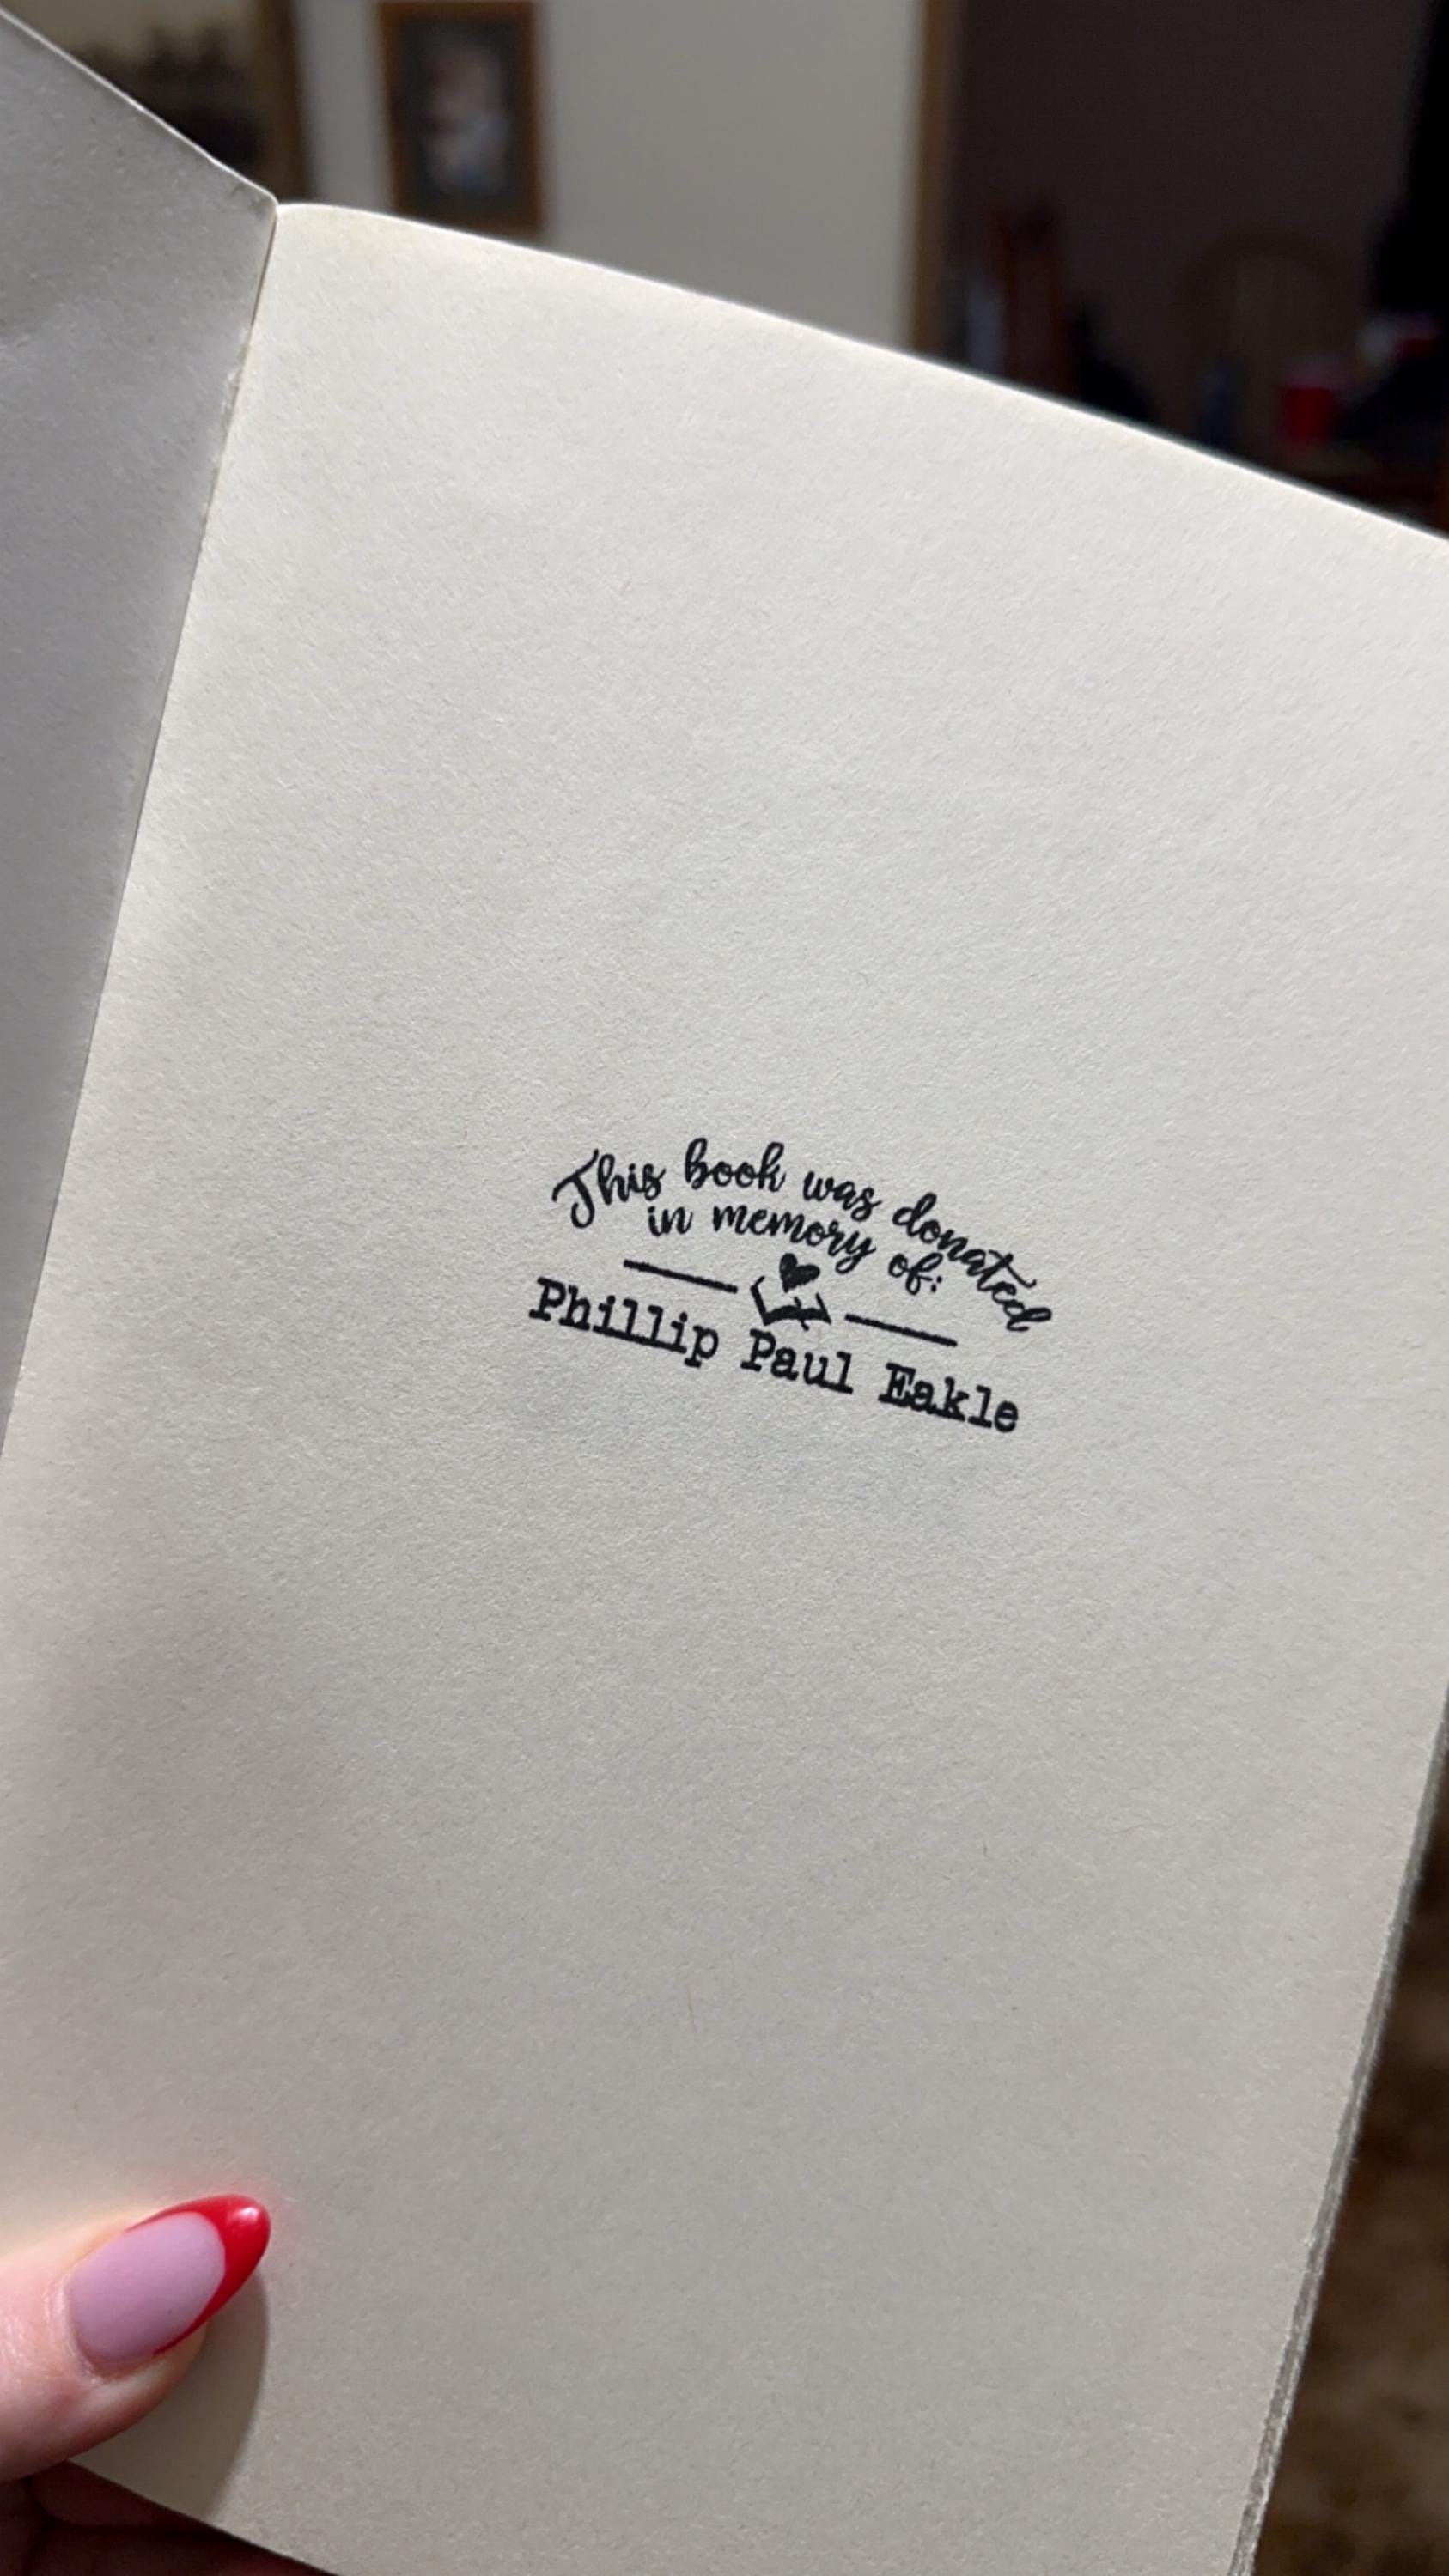 This book was donated
in memory of:
Phillip Paul Eakle